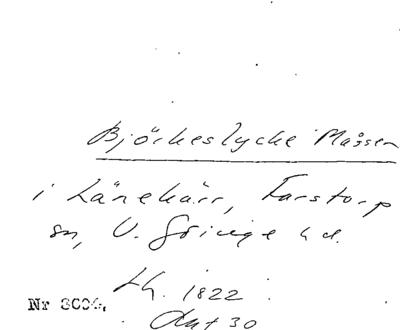 Björkeslycke Mossen
i Länekärr, Farstorp
sn, V. Göinge hd.
Lh. 1822
Akt 30
Nr 3006.